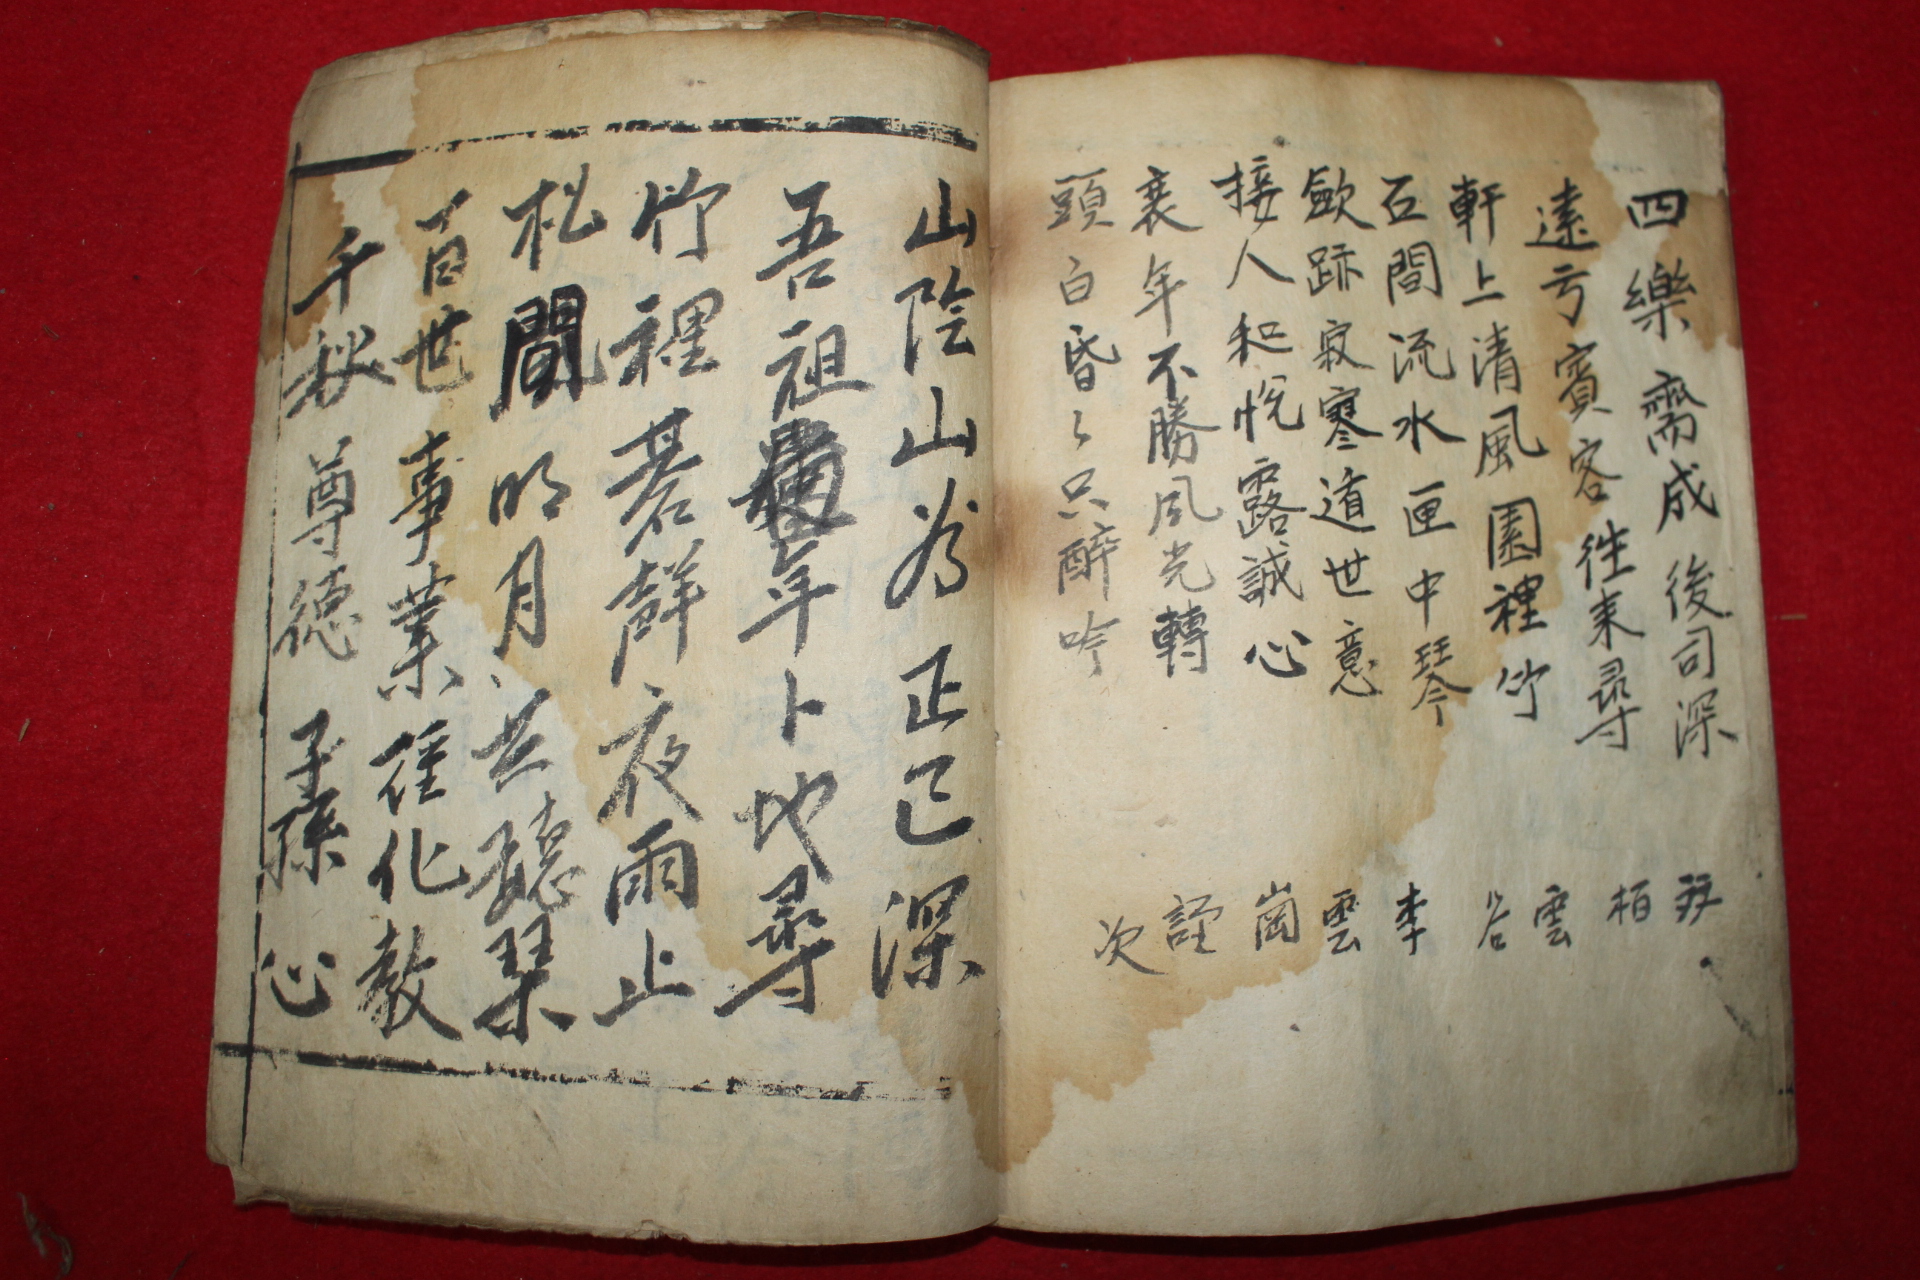 四樂齋成後司深
遠方賓客往来尋
軒上清風園裡竹
石間流水匣中琴
斂跡寂寥道世意
接人和悅露誠心
衰年不勝風光轉
頭白昏々只醉吟
栢
雲
谷
李
雲
崗
謹
次
山陰山為正已深
吾祖 年卜地尋
竹裡碁聲夜雨止
松間明月共聽琴
百世事業 化教
千秋尊德子孫心